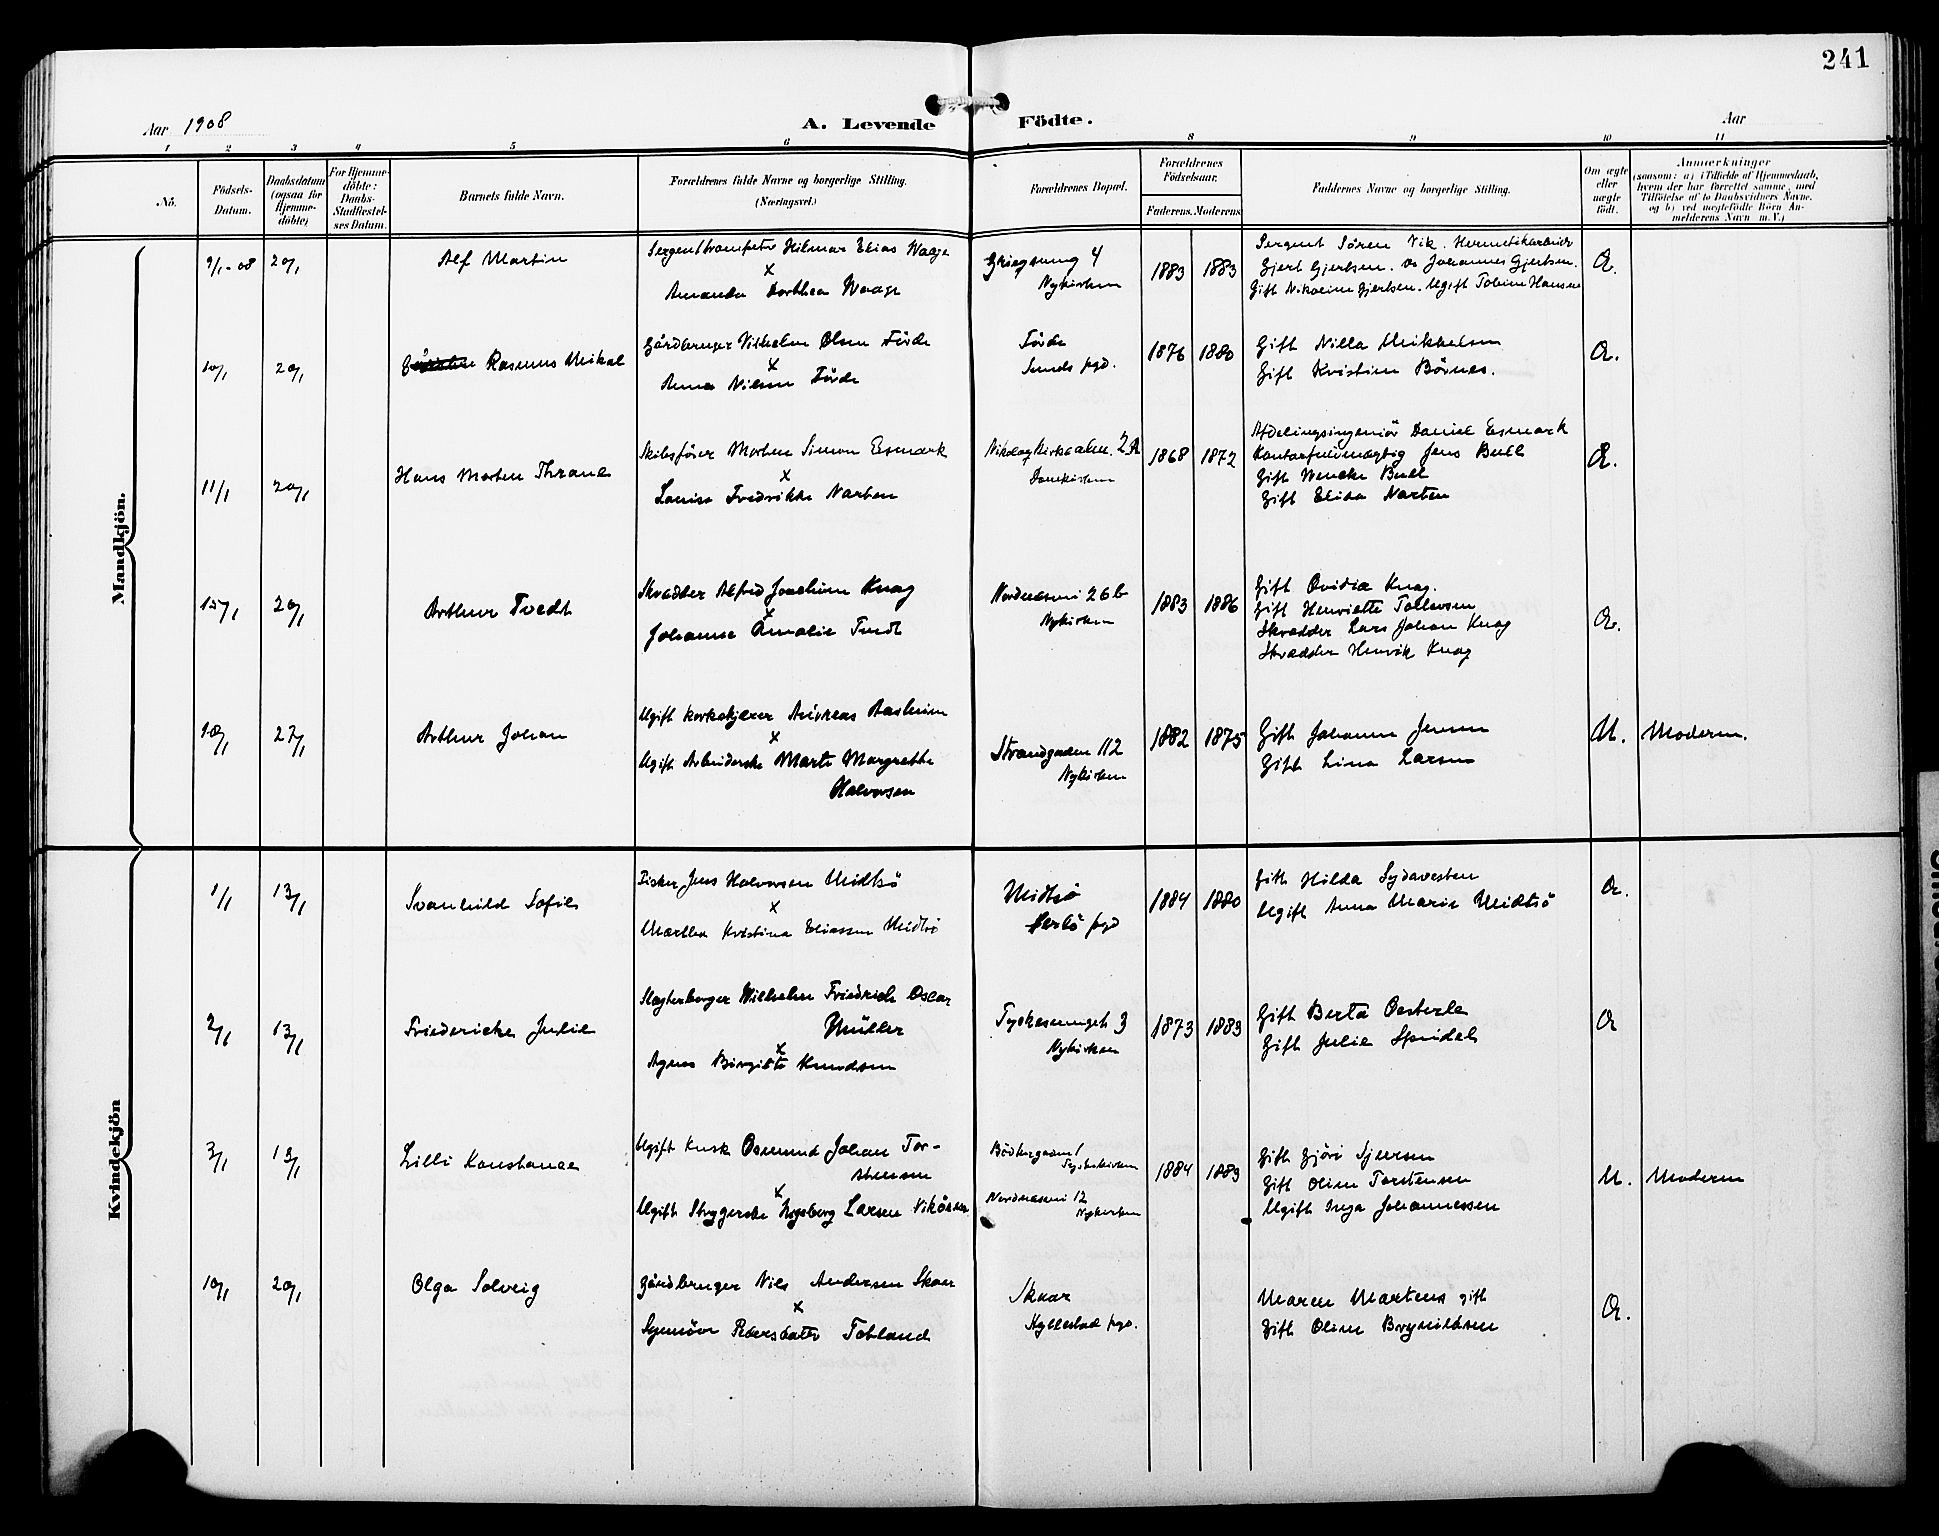 241
Aar 1908
A. Levende Födte.
Aar
1 2 3 4 5 6 8 9 10 11
No.
Födsels-Datum.
Daabsdatum (ogsaa for Hjemmedöbte)
For Hjemmedöbte: Daabs-Stadfæstelses Datum.
Barnets fulde Navn.
Forældrenes fulde Navne og borgerlige Stilling.
(Næringsvei.)
Forældrenes Bopæl.
Forældrenes Födselsaar.
Faderens. Moderens.
Faddernes Navne og borgerlige Stilling.
Om ægte eller uægte födt.
Anmærkninger
(saasom: a) i Tilfælde af Hjemmedaab, hvem der har forrettet samme, med Tilföielse af to Daabsvidners Navne. og b) ved uægtefödte Börn Anmelderens Navn m. V.)
Mandkjön.
9/1-08 20/1 Alf Martin
Sergenttrompeter Hilmar Elias Waage
x
Amanda Dorthea Waage
4
Nykirken
1883 1883
Sergent Sören Vik. Hermetikarbeider
Gjert Gjertsen. do Johannes Gjertsen.
Gift Nikoline Gjertsen. Ugift Tobine Hansen
Æ.
10/1 20/1 Rasmus Mikal
Gårdbruger Vilhelm Olsen Förde
x
Anna Nilsen Förde
Förde
Sunds pgd.
1876 1880
Gift Nilla Mikkelsen
Gift Kristine Börnes.
Æ.
11/1 20/1 Hans Morten Thrane
Skibsförer Morten Simon Esmark
x
Louise Fredrikke Narten
Nikolaykirkealm. 2A
Domkirken
1868 1872
Afdelingsingeniör Daniel Esmark
Kontorfuldmægtig Jens Bull
Gift Wencke Bull
Gift Elida Narten
Æ.
15/1 20/1 Arthur Tvedt
Skrædder Alfred Joachim Knag
x
Johanne Amalie Tvedt
Nordnæsvei 26 b
Nykirken
1883 1886
Gift Ovidia Knag.
Gift Henriette Tollevsen
Skrædder Lars Johan Knag
Skrædder Henrik Knag
Æ.
18/1 27/1 Arthur Johan
Ugift korkskjærer Andreas Aasheim
x
Ugift Arbeiderske Marte Margrethe
Halvorsen
Strandgaden 112
Nykirken
1882 1875
Gift Johanne Jensen
Gift Lina Larsen
U. Moderen.
Kvindekjön
1/1 13/1 Svanhild Sofie
Fisker Jens Halvorsen Midtsö
x
Martha Kristina Eliassen Midtsö
Midtsö
Herlö pgd
1884 1880
Gift Hilda Sydavesten
Ugift Anna Marie Midtsö
Æ.
2/1 13/1 Friedericke Julie
Slagterborger Wilhelm Friedrich Oscar
Müller
x
Agnes Birgitte Knudsen
Tyskesmuget 3
Nykirken
1873 1883
Gift Berta Oesterle
Gift Julie Speidel
Æ
3/1 19/1 Lilli Konstance
Ugift Kusk Osmund Johan Tor-
stensen
x
Ugift Strygerske Ingeborg Larsen Vikören
Bödkergaden 1
Nordnæsvei 12
Nykirken
1884 1883
Gift Gjöri Sjursen
Gift Oline Torstensen
Ugift Inga Johannessen
U. Moderen
10/1 20/1 Olga Solveig
Gårdbruger Nils Andersen Skaar
x
Synnöve Roersdatter Tofland
Skaar
Hyllestad pgd.
Maren Martens gift
Gift Oline Brynildsen
Æ.